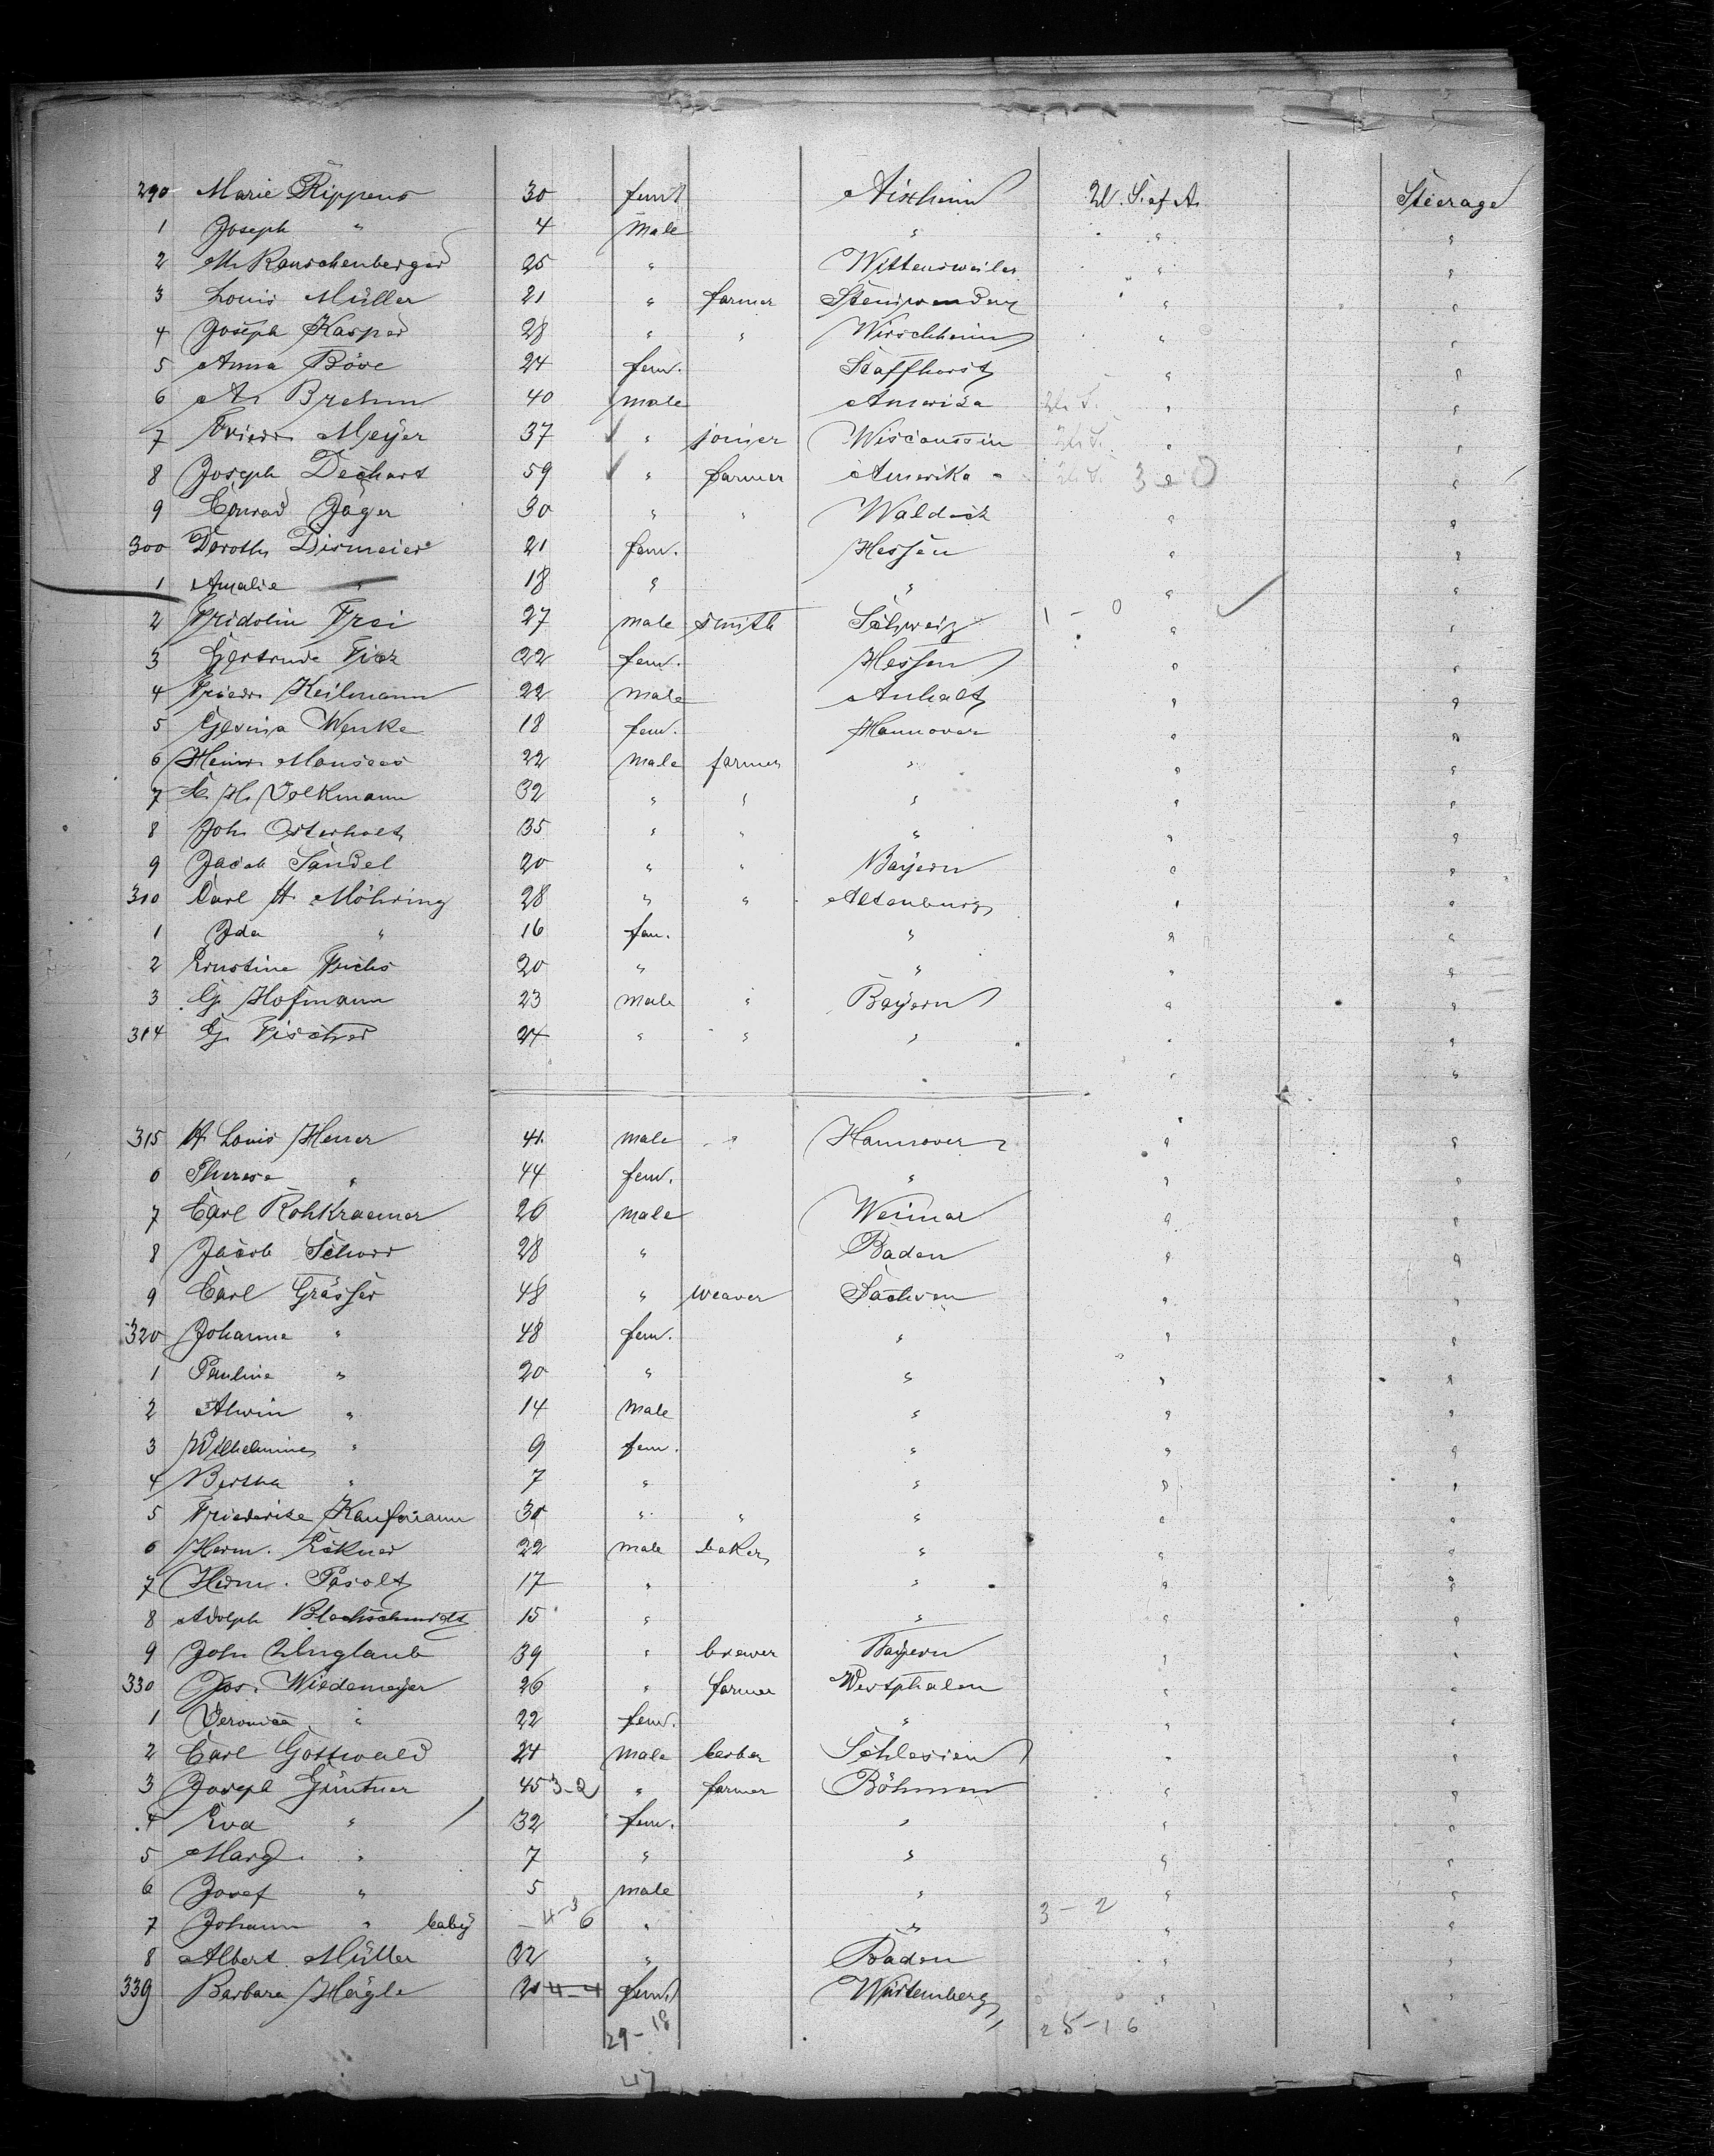 290 Marie Rippens 30 fem. Aixheim U. S. of A. Steerage
1 Joseph " 4 Male " " "
2 M. Rauschenberger 25 " Wittensweiler " "
3 Louis Müller 21 " farmer " "
4 Joseph Kasper 28 " " " "
5 Anna Böve 24 fem. Staffhorst " "
6 A. Brehm 40 male Amerika U. S. " "
7 Friedr. Meyer 37 " joiner Wisconssin U. S. " "
8 Joseph Dechart 59 " farmer Amerika U. S. 3-0 " "
9 Conrad Jäger 30 " " Waldeck " "
300 Doroth. Dirmeier 21 fem. Hessen " "
1 Amalie " 18 " " " "
2 Fridolin Frei 27 male smith Schweiz 1-0 " "
3 Gertrude 22 fem. Hessen " "
4 Friedr. Keilmann 22 male Anhalt " "
5 Gesina Wenke 18 fem. Hannover " "
6 Heinr. Mansees 22 male farmer " " "
7 H. Volkmann 32 " " " " "
8 Joh. Osterholt 35 " " " " "
9 Jacob Sandel 20 " " Bayern " "
310 Carl H. Möhring 28 " " Altenburg " "
1 Ida " 16 fem. " " "
2 Ernstine Fuchs 20 " " " "
3 G. Hofmann 23 male " Bayern " "
314 G. Fischer 24 " " " " "
" "
315 H. Louis 41 male " Hannover " "
6 Therese " 44 fem. " " "
7 Carl Rohkraemer 26 male Weimar " "
8 Jacob Schorr 28 " Baden " "
9 Carl Grässer 48 " weaver Sachsen " "
320 Johanne " 48 fem. " " "
1 Pauline " 20 " " " "
2 Alwin " 14 male " " "
3 Wilhelmine " 9 fem. " " "
4 Bertha " 7 " " " "
5 Friederike Kaufmann 30 " " " " "
6 Herm. 22 male baker " " "
7 Herm. Pasolt 17 " " " "
8 Adolph Blechschmidt 15 " " " "
9 John Unglaub 39 " brewer Bayern " "
330 Jos. Wiedemeyer 26 " farmer Westphalen " "
1 Veronica " 22 fem. " " "
2 Carl Gottwald 24 male Schlesien " "
3 Joseph Güntner 45 3-2 " farmer Böhmen " "
4 Eva " 32 fem. " " "
5 Marg. " 7 " " " "
6 Josef " 5 male " " "
7 Johann " baby " " 3-2 " "
8 Albert Müller 22 " Baden " "
339 Barbara Hägle 20 4-4 fem. Würtemberg " "
29-18 25-16
47